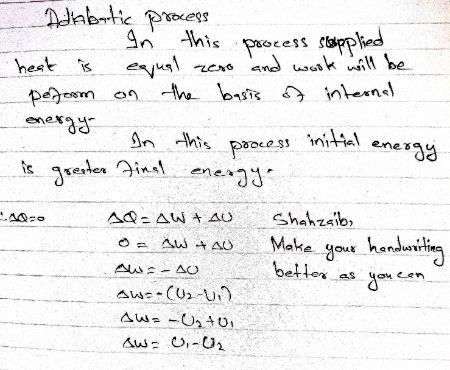 Adiabatic process
In this process supplied
heat is equal zero and work will be
peform on the basis of internal
energy.
In this process initial energy
is greater final energy.
∵ ΔQ=0 ΔQ = ΔW + ΔU
0 = ΔW + ΔU
ΔW = - ΔU
ΔW = -(U2-U1)
ΔW = -U2+U1
ΔW = U1-U2
Shahzaib,
Make your handwriting
better as you can